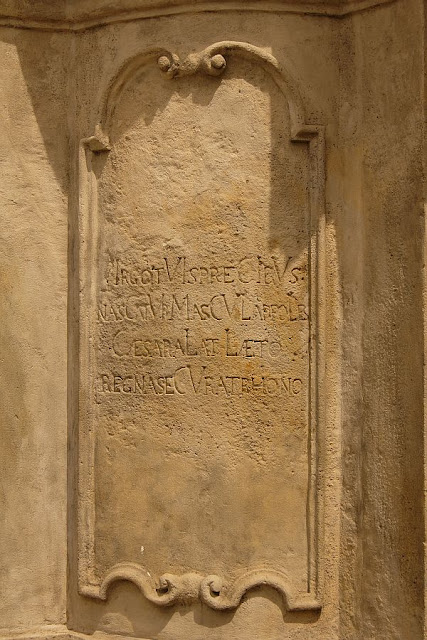 VIRGO TVIS PRECIBVS
NASCATVR MASCVLA PROLES
CAESARA LAT LAETO
REGNA SECVRA